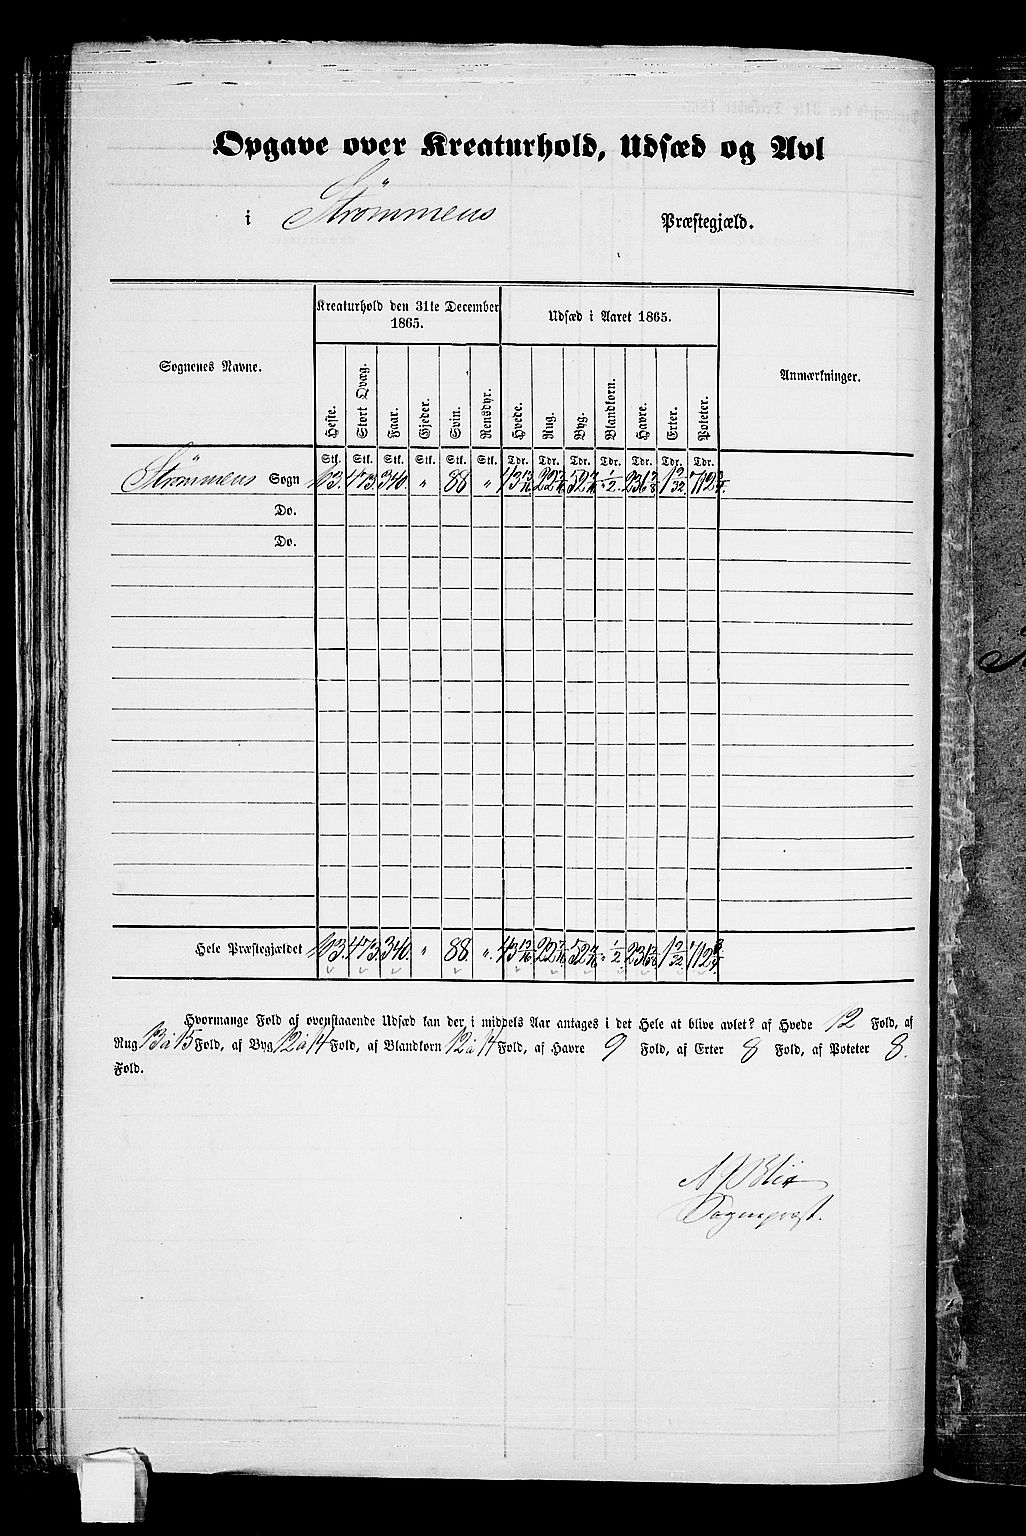 Opgave over Kreaturhold, Udsæd og Avl
i Strömmens Præstegjæld.
Kreaturhold den 31te December 1865.
Udsæd i Aaret 1865.
Sognenes Navne.
Anmærkninger.
Heste. Stort Qvæg. Faar. Gjeder. Svin. Rensdyr. Hvede. Rug. Byg. Blandkorn. Havre. Erter. Poteter.
Stk. Stk. Stk. Stk. Stk. Stk. Tdr. Tdr. Tdr. Tdr. Tdr. Tdr. Tdr.
Strömmens Sogn 103. 473. 340. " 88 " 43 13/16 22 7/16 52 7/16 1/2. 1 9/32 712 3/4.
Do.
Do.
Hele Præstegjældet 103. 473. 340. " 88. " 43 13/16 22 7/16 52 7/16 1/2. 1 9/32 712 3/4
Hvormange Fold af ovenstaaende Udsæd kan der i middels Aar antages i det Hele at blive avlet? af Hvede 12 Fold, af
Rug 13 à 15 Fold, af Byg 12 à 14 Fold, af Blandkorn 12 à 14 Fold, af Havre 9 Fold, af Erter 8 Fold, af Poteter 8.
Fold.
Blix
Sognepræst.